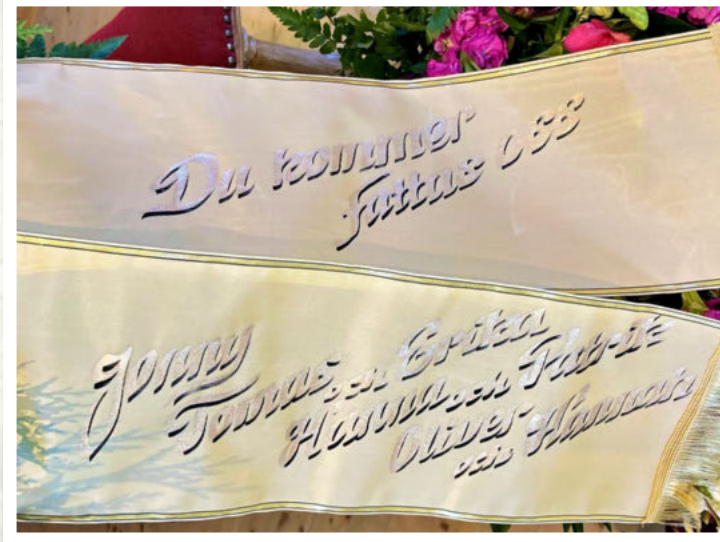 Du kommer
fattas oss
Jonny
Tomas och Erika
Hanna och Patrik
Oliver
och Hannah